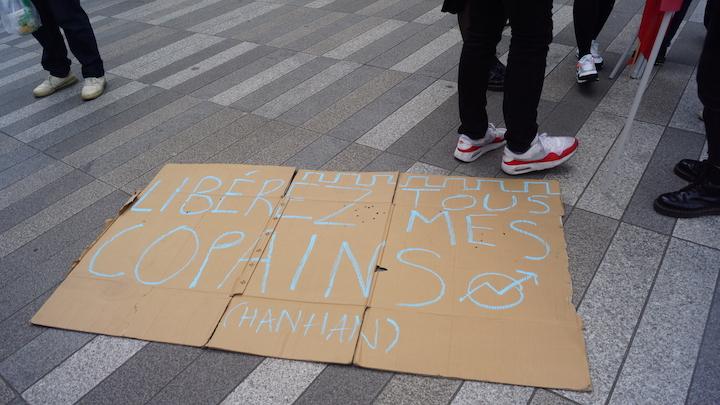 LIBÉREZ TOUS
MES
COPAINS
(HANHAN)